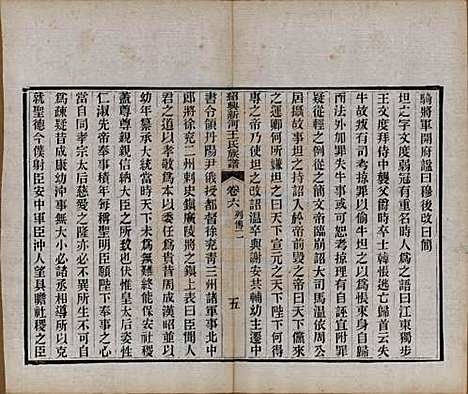 騎將軍開府諡曰穆後改曰簡
坦之字文度弱冠有重名時人爲之語曰江東獨步
王文度拜侍中襲父爵時卒士韓悵逃亡歸首云失
牛故叛有司劾悵偷牛考掠服罪坦之以爲悵束身自歸
而法外加罪懈怠失牛事或可恕加之木石理有自誣宜附罪
疑從輕之例遂以見原簡文帝臨崩詔大司馬溫依周公
居攝故事坦之持詔入於帝前毀之帝曰天下儻來
之運卿何所嫌坦之曰天下宣元之天下陛下何得
專之帝乃使坦之改詔溫卒與謝安共輔幼主遷中
紹興新河王氏族譜
卷六
列傳二
五
書令領丹陽尹俄授都督徐兗青三州諸軍事北中
郎將徐兗二州刺史鎮廣陵將之鎮上表曰臣聞人
君之道以孝敬爲本臨御四海以委任爲貴昔周成漢昭並以
幼年纂承大統當時天下未爲無難終能顯揚祖考保安社稷
蓋尊尊親親信納大臣之所致也伏惟皇太后
仁淑先帝奉事積年每稱聖明臣願陛下奉事之心
當自同孝宗太后慈愛之隆亦必不異所生不可自
爲疎疑昔成康幼沖事無大小必諮丞相導所以克
就聖德今僕射臣安中軍臣沖人望具瞻社稷之臣